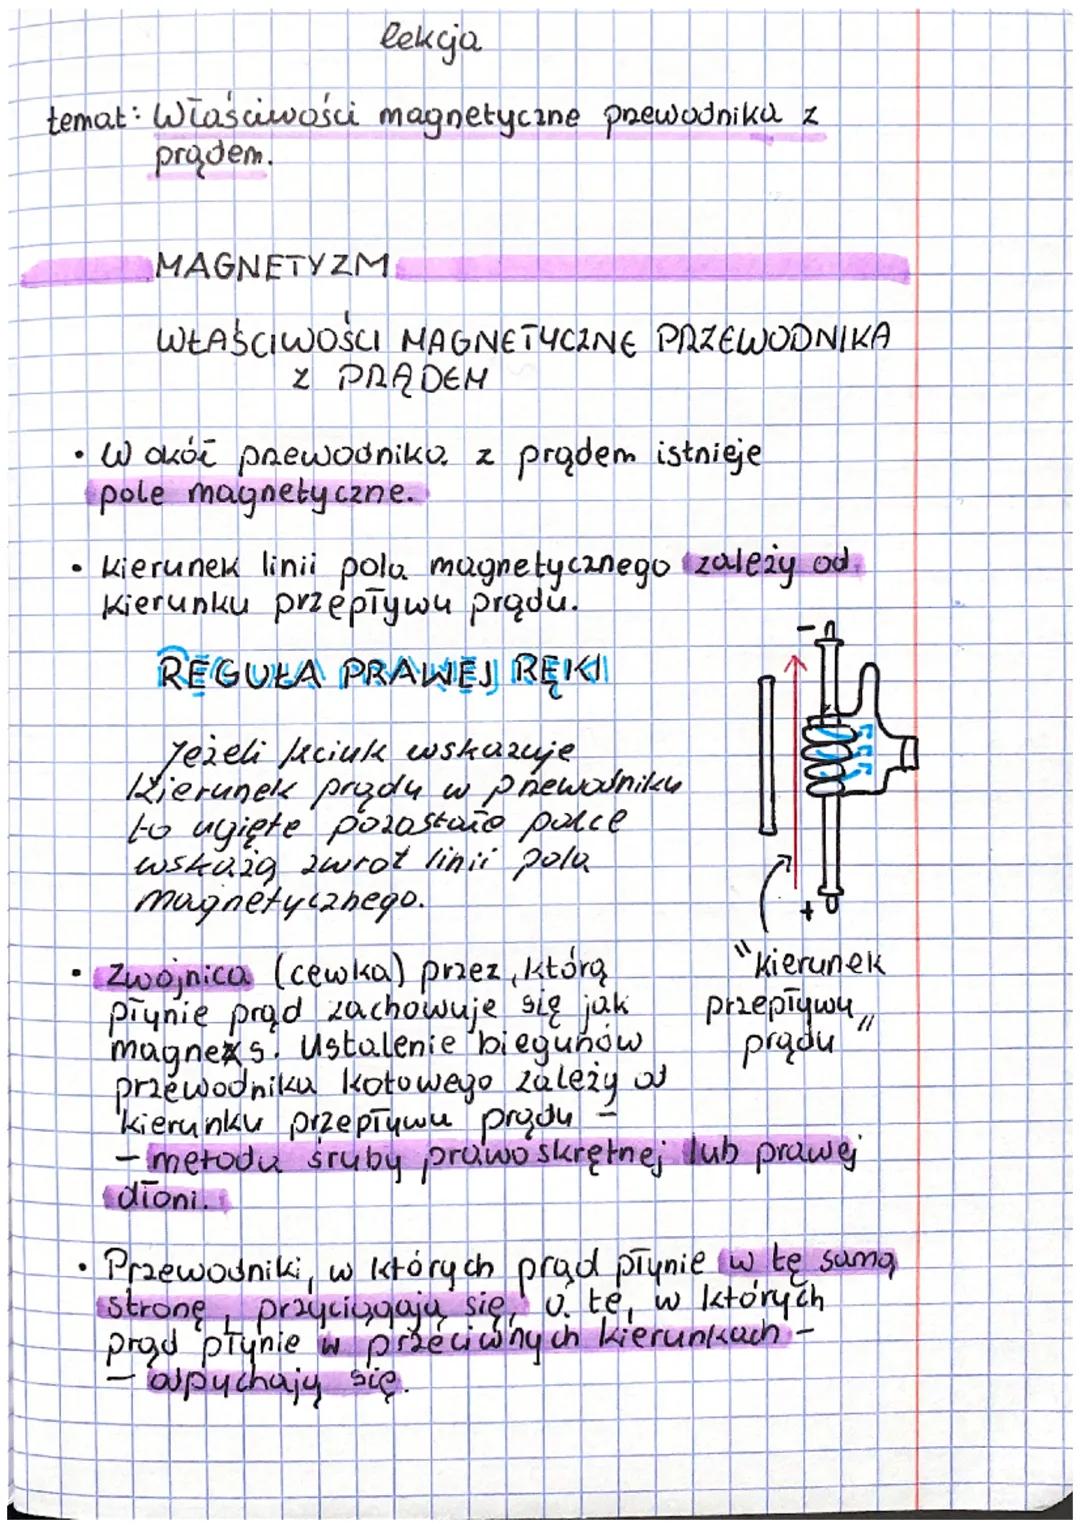 lekcja
temat: Właściwości magnetyczne przewodnika z
prądem.
MAGNETYZM
WŁAŚCIWOŚCI MAGNETYCZNE PRZEWODNIKA
Z PRĄDEM
• Wokół przewodnika z prądem istnieje
pole magnetyczne.
• kierunek linii pola magnetycznego zależy od
kierunku przepływu prądu.
REGUŁA PRAWEJ RĘKI
Jeżeli kciuk wskazuje
kierunek prądu w przewodniku
to ugięte pozostałe palce
wskażą zwrot linii pola
magnetycznego.
-
+
"kierunek
przepływu
prądu"
• Zwojnica (cewka) przez, którą
płynie prąd zachowuje się jak
magnes. Ustalenie biegunów
przewodnika kołowego zależy od
kierunku przepływu prądu -
- metoda śruby prawoskrętnej lub prawej
dłoni.
• Przewodniki, w których prąd płynie w tę samą
stronę, przyciągają się, a te, w których
prąd płynie w przeciwnych kierunkach -
- odpychają się.